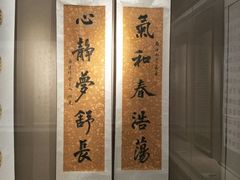 氣和春浩蕩
心靜夢舒長